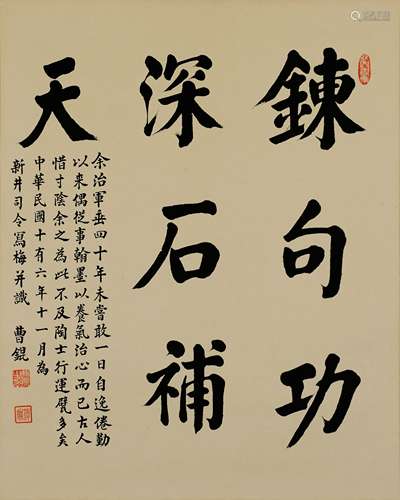 鍊句功
深石補
天
余治軍垂四十年未嘗敢一日自逸倦勤
以来偶從事翰墨以養氣治心而已古人
惜寸陰余之為此不及陶士行運甓多矣
中華民國十有六年十一月為
新井司令寫梅并識 曹錕